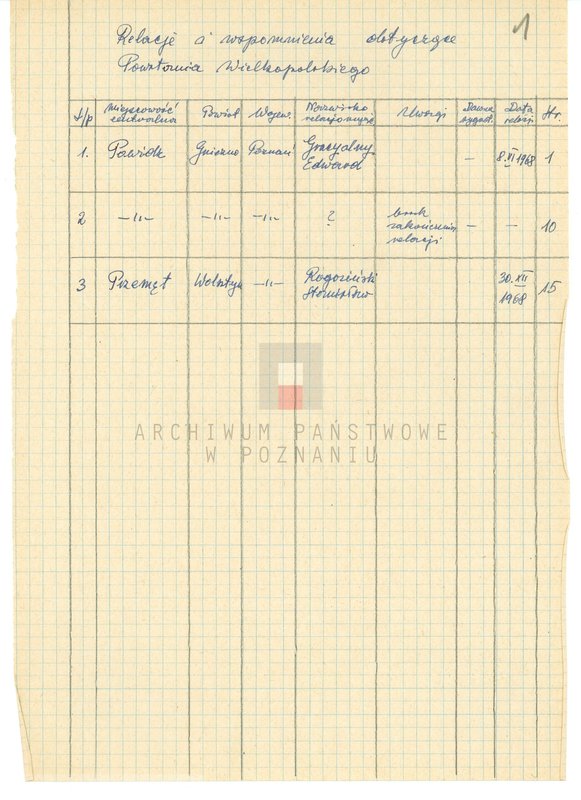 1
Relacje i wspomnienia dotyczące
Powstania Wielkopolskiego
l/p Miejscowość Powiat Wojew. Nazwisko Uwagi Dawna Data Str.
relacjonującego sygnat. relacji
1. Powidz Gniezno Poznań Gracyalny Edward – 8.VI 1968 1
2 –"– –"– –"– ? brak zakończenia relacji – – 10
3 Przemęt Wolsztyn –"– Rogoziński Stanisław 30.XII 1968 15
ARCHIWUM PAŃSTWOWE
W POZNANIU